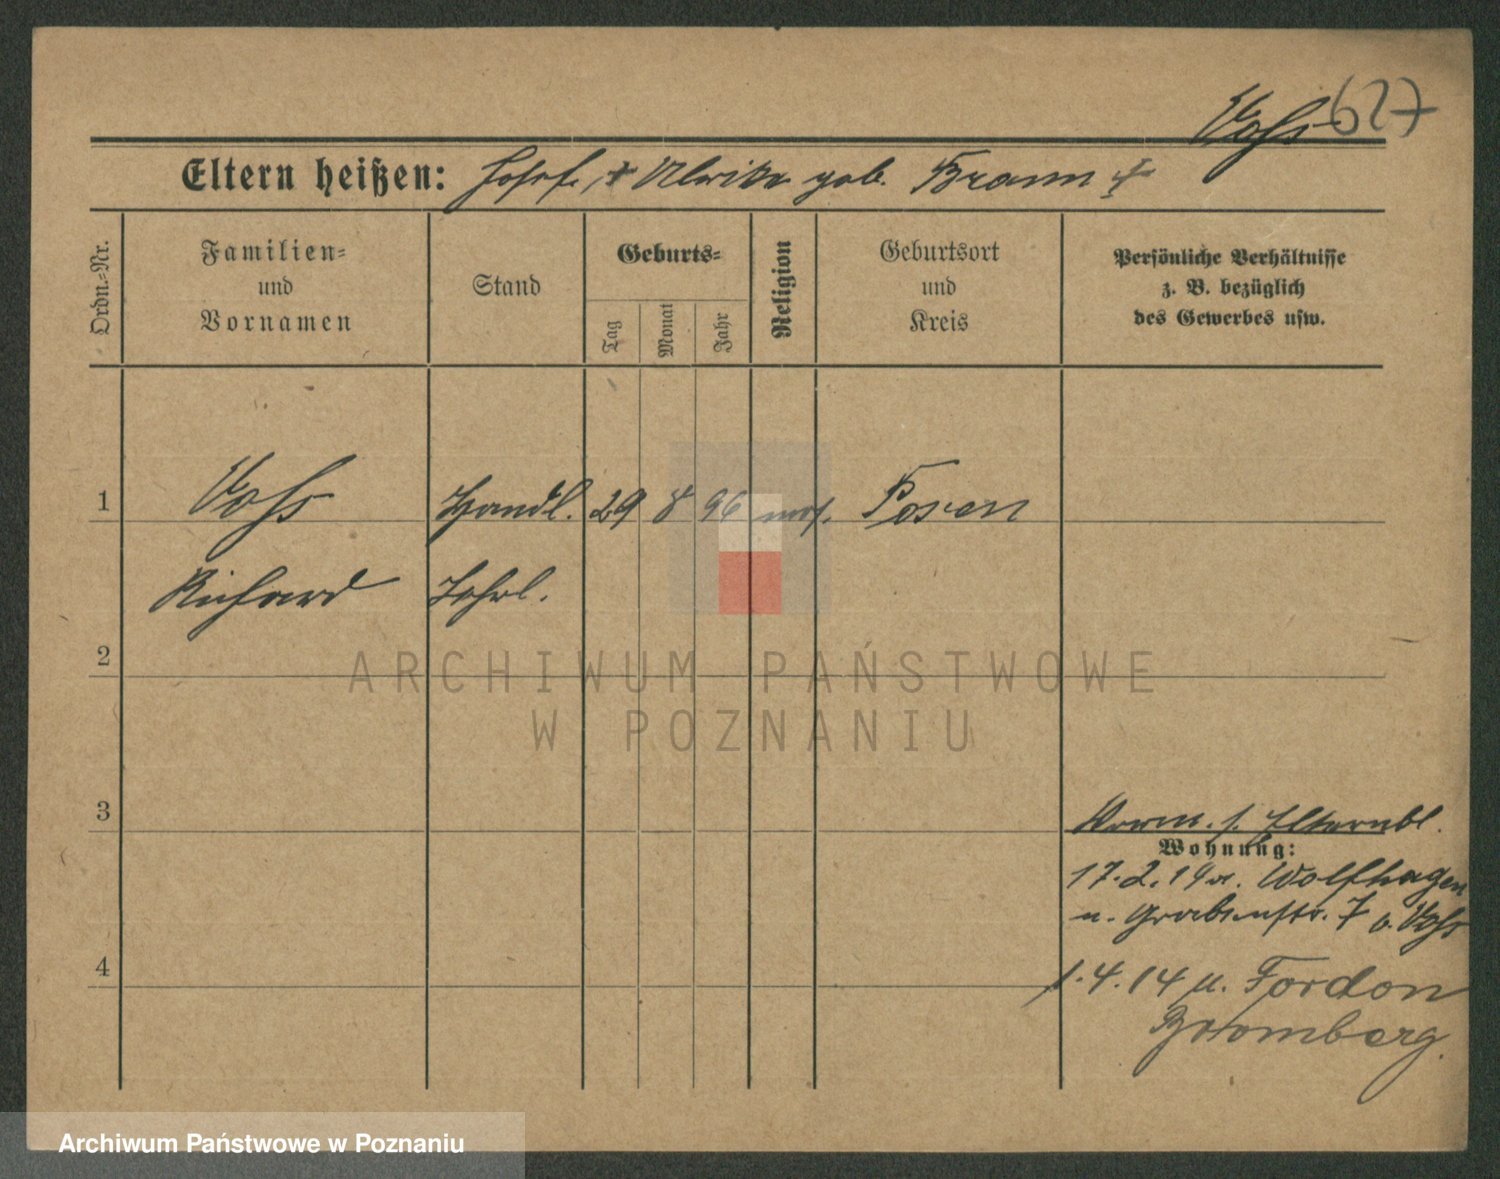 Vohs 627
Eltern heißen: Josef + Ulrike geb. Braun +
Ordn.-Nr.
Familien-
und
Vornamen
Stand
Geburts-
Tag
Monat
Jahr
Religion
Geburtsort
und
Kreis
Persönliche Verhältnisse
z. B. bezüglich
des Gewerbes usw.
1 Vohs Handl. 29 8 96 mos. Posen
Richard Lehrl.
2
ARCHIWUM PAŃSTWOWE
W POZNANIU
3 Vorm. s. Elternbl.
Wohnung:
17.2.14 v. Wolfhagen
n. Grabenstr. 7 b. Vohs
4 1.4.14 n. Fordon
Bromberg.
Archiwum Państwowe w Poznaniu